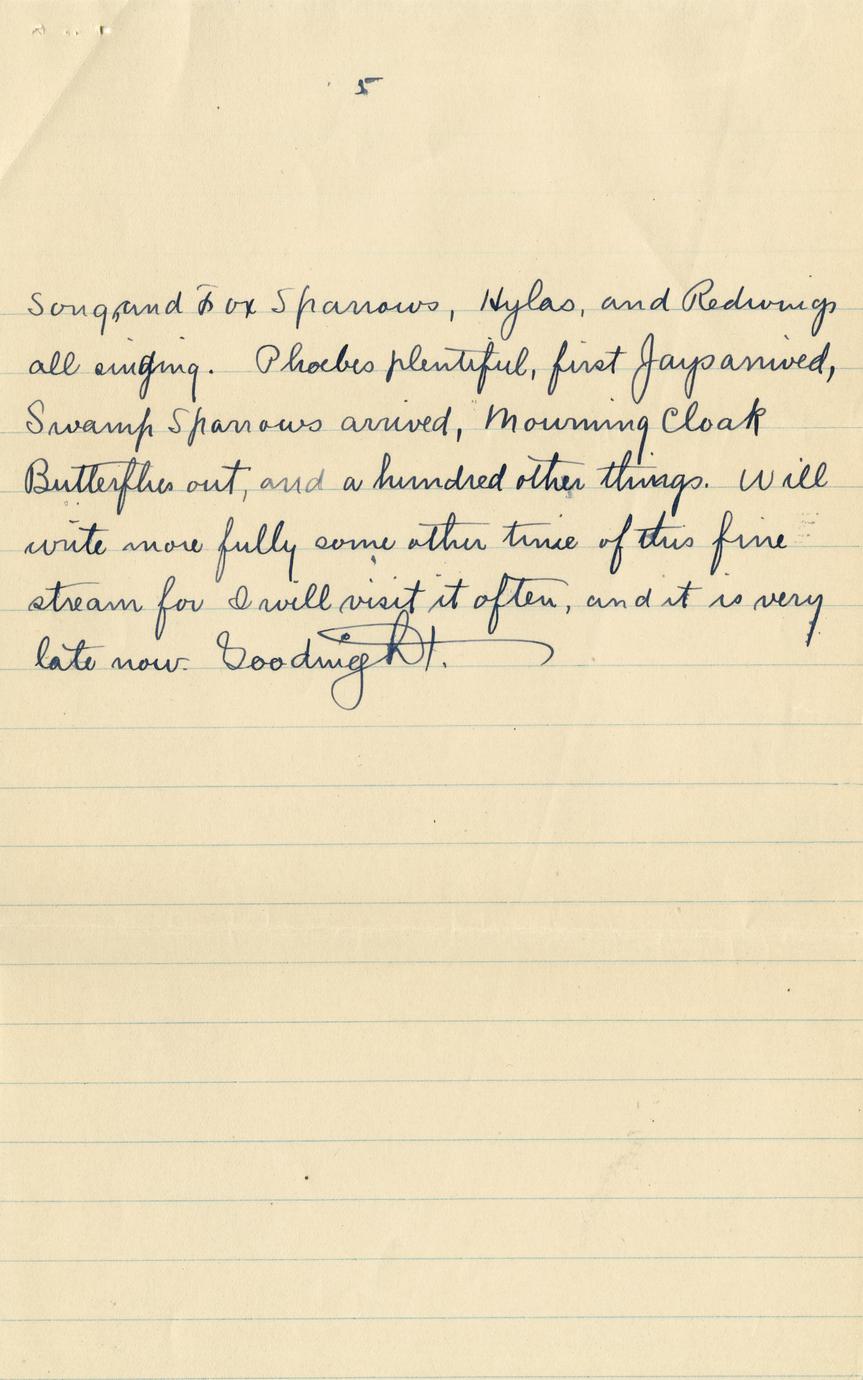 5
Song, and Fox Sparrows, Hylas, and Redwings
all singing. Phoebes plentiful, first Jays arrived,
Swamp Sparrows arrived, Mourning Cloak
Butterflies out, and a hundred other things. Will
write more fully some other time of this fine
stream for I will visit it often, and it is very
late now. Goodnight.